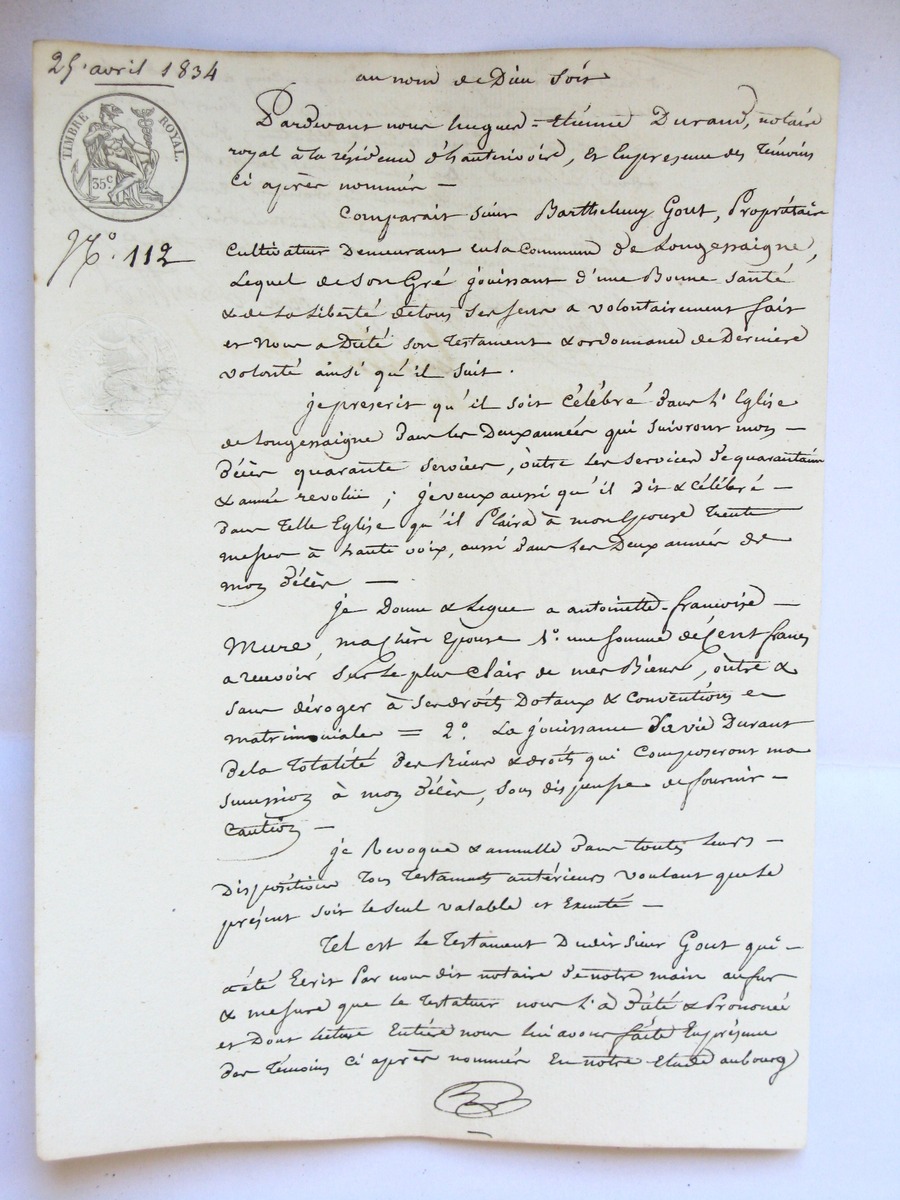 25. avril 1834
au nom de Dieu soit
TIMBRE ROYAL.
35c
Pardevant nous hugues-étienne Durand, notaire
royal à la résidence d'hauterivoire, et En présence des Témoins
Ci après nommés —
N.° 112
Comparait sieur Barthelemy Gout, Propriétaire
Cultivateur Demeurant en la Commune de Longessaigne,
Lequel de Son Gré jouissant d'une Bonne Santé
& de La Liberté de tous Ses sens a volontairement fait
et Nous a Dicté son Testament & ordonnance de Dernière
volonté ainsi qu'il suit.
je prescrit qu'il soit Célébré dans L'Eglise
de Longessaigne dans les Deux années qui suivront mon —
décès quarante services, outre les services de quarantaine
& année revolüe ; je veux aussi qu'il dit & célébré —
dans Telle Eglise qu'il Plaira à mon Epouse Trente
messes à haute voix, aussi dans les Deux années de
mon décès —
je Donne & Legue a antoinette-francoise —
Mure, ma chère Epouse 1.° une somme de Cent francs
a recevoir sur le plus Clair de mes Biens, outre &
sans déroger à Ses droits Dotaux & Conventions
matrimoniales = 2.° La jouissance Sa vie Durant
de la Totalité des Biens & droits qui Composeront ma
succession à mon décès, sous dispense de fournir —
Caution —
je Revoque & annulle dans toutes leurs —
Dispositions Tous Testaments antérieurs voulant que le
présent soit le seul valable et Exécuté —
Tel est le Testament Dudit Sieur Gout qui —
a été Ecrit Par nous dit notaire de notre main au fur
& mesure que le Testateur nous l'a Dicté & Prononcé
et Dont lecture Entière nous lui avons faite En présence
des Témoins Ci après nommés En notre Etude au bourg